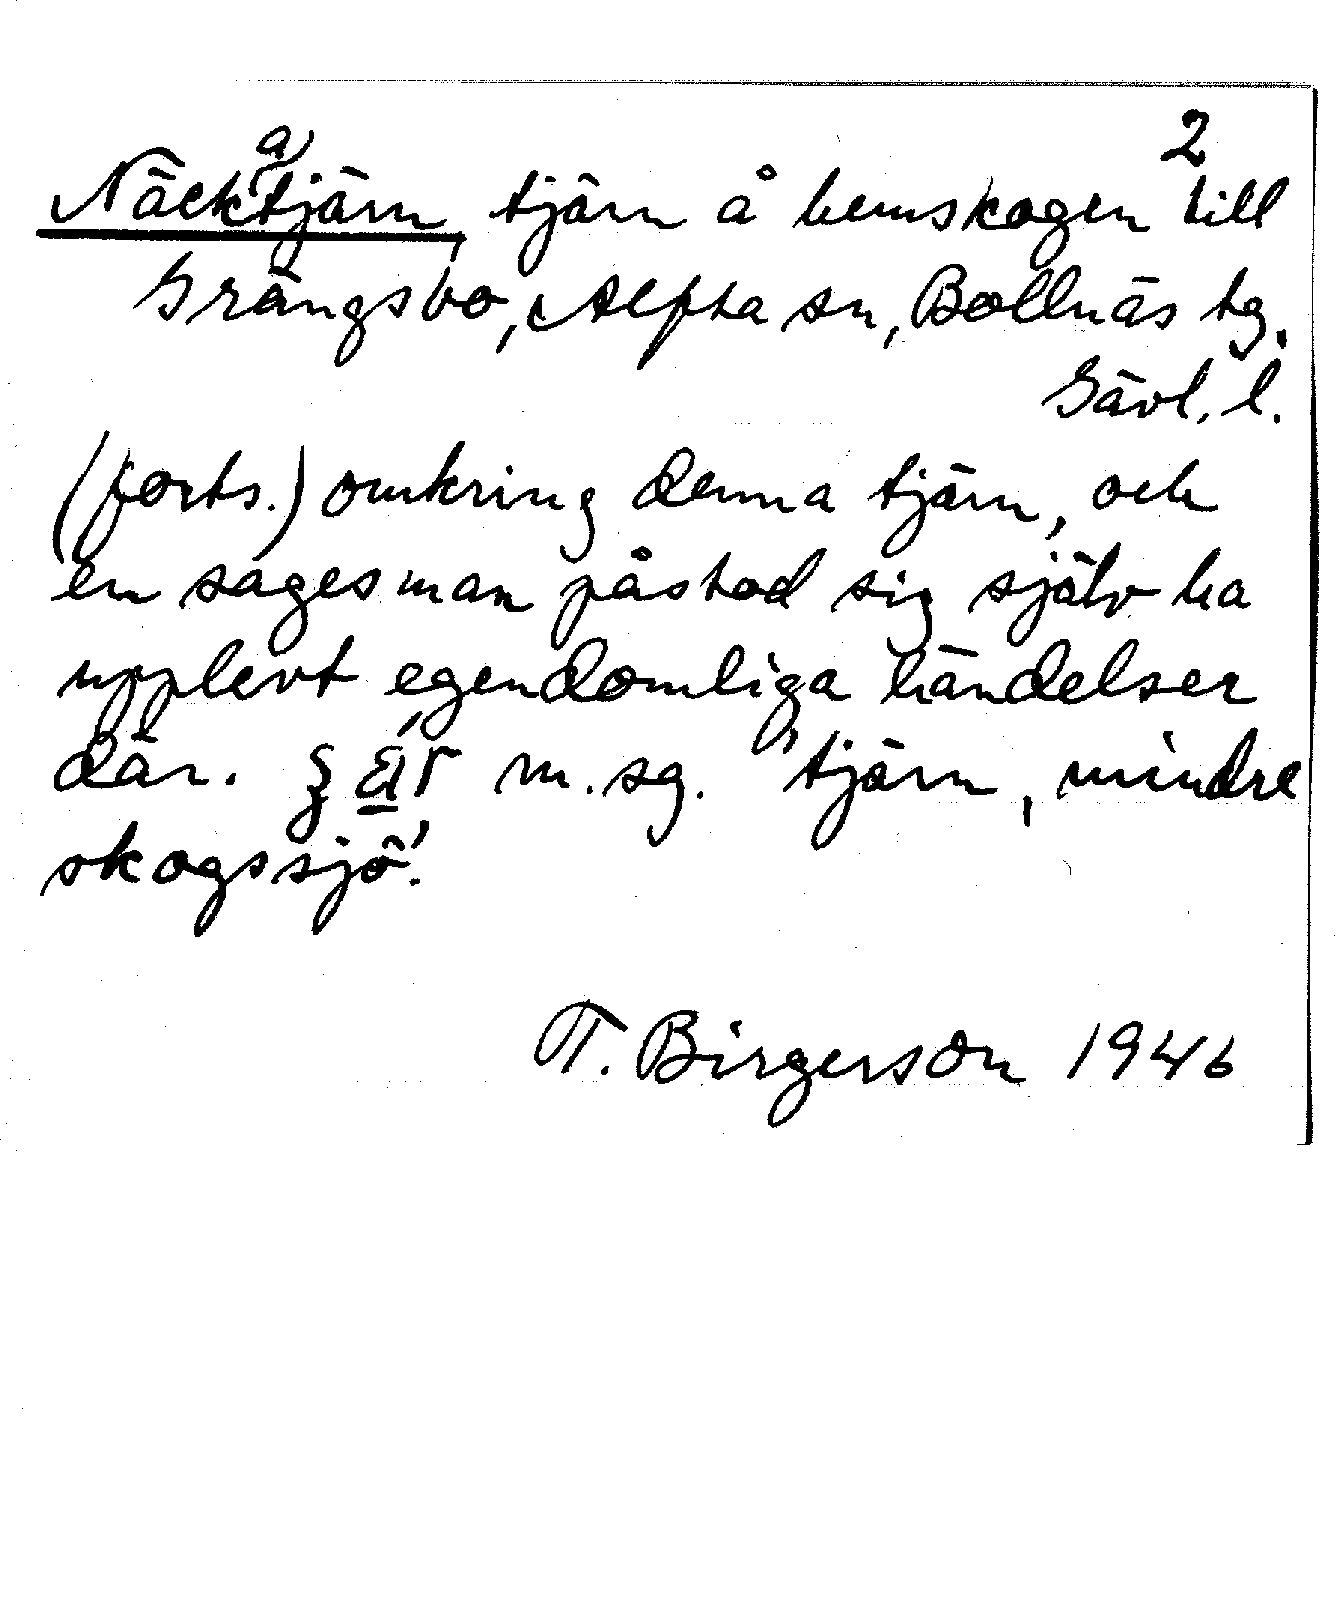 2
Näckatjärn, tjärn å hemskogen till
Grängsbo, Alfta sn, Bollnäs tg.
Gävl. l.
(forts.) omkring denna tjärn, och
en sagesman påstod sig själv ha
upplevt egendomliga händelser
där. m. sg. 'tjärn, mindre
skogssjö'.
T. Birgerson 1946